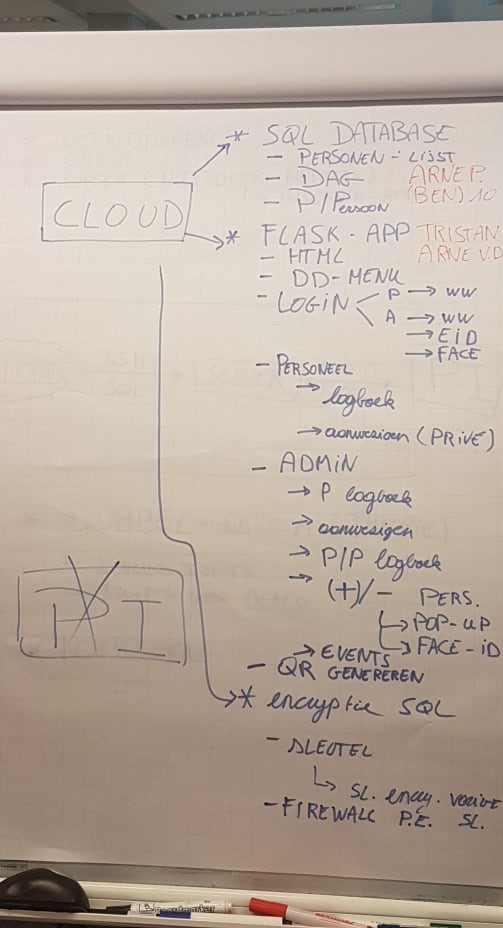 * SQL DATABASE
- PERSONEN - LIJST
- DAG ARNE P.
- P/PERSOON (BEN) 10
CLOUD
* FLASK - APP TRISTAN
- HTML ARNE V.D
- DD-MENU
- LOGIN < P → WW
A → WW
→ EID
→ FACE
- PERSONEEL
→ logboek
→ aanwezigen (PRIVÉ)
- ADMIN
→ P logboek
→ aanwezigen
→ P/P logboek
→ (+)/- PERS.
→ POP-UP
PI
→ FACE-iD
→ EVENTS
- QR GENEREREN
* encryptie SQL
- SLEUTEL
↳ SL. encry. vorige
- FIREWALL P.E. SL.